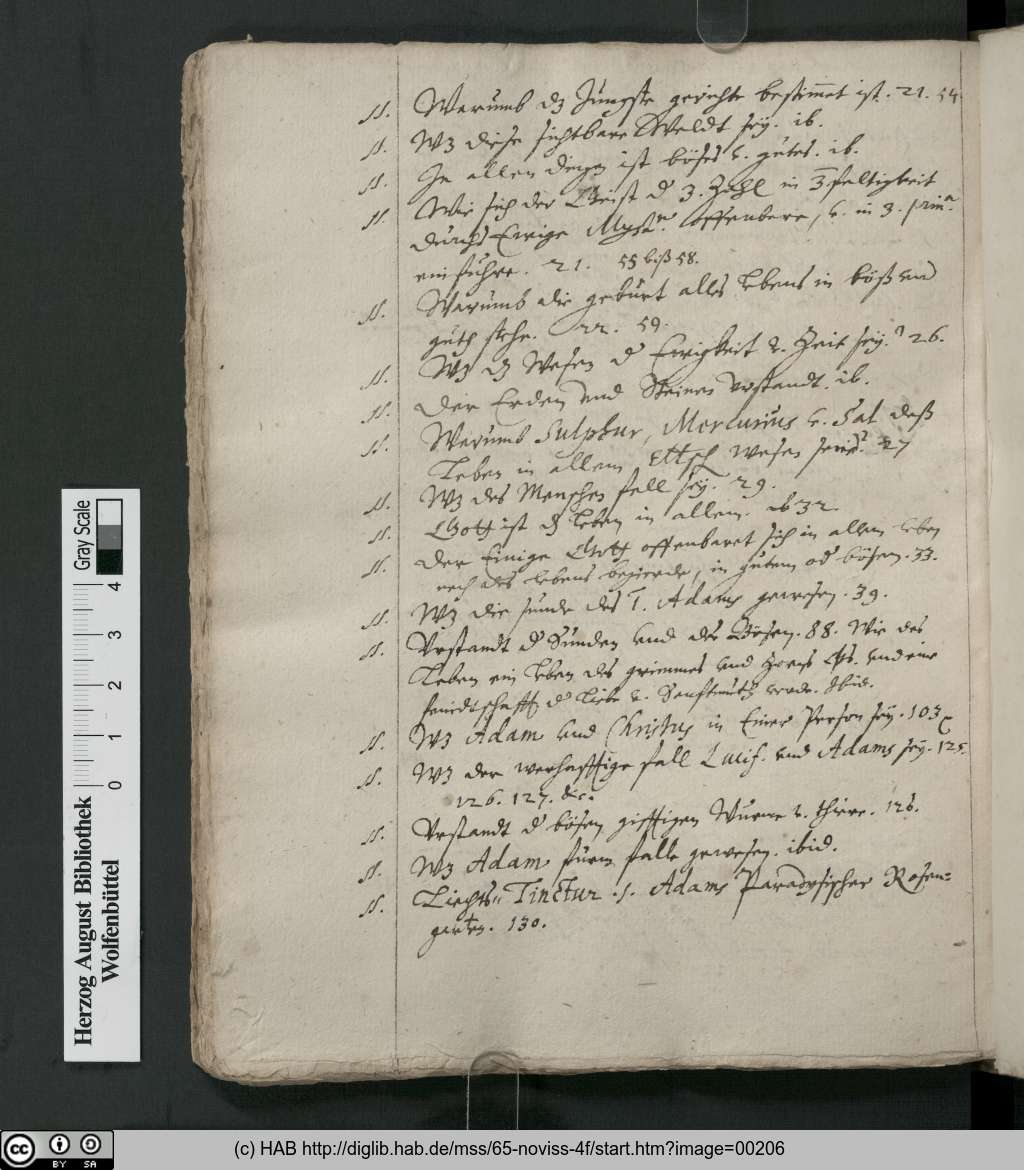 Warumb dz Jüngste gerichte bestimmet ist. 21. 54.
Wz diese sichtbare Weldt seÿ. ib.
In allen dingen ist böses v. gutes. ib.
Wie sich der Geist d 3. Zahl in 3faltigkeit
durchs Ewige Offenbare, v. in 3. prin.
einführe. 21. 55 biß 58.
Warumb die geburt alles lebens in böß und
guth stehe. 22. 59.
Wz dz Wesen d Ewigkeit v. Zeit seÿ? 26.
Der Erden und Steinen urstandt. ib.
Warumb Sulphur, Mercurius v. Sal deß
Leben in allem wesen 27
Wz des Menschen fall seÿ. 29.
Gott ist dz leben in allem. 32.
Der Einige Gott offenbaret sich in allem leben
nach des lebens begierde, in gutem od bösem. 33.
Wz die sünde des 1. Adams gewesen. 39.
Urstandt d Sünden und des Bösen. 88. Wie das
Leben ein leben des grimmes und Zorns und eine
feindtschafft d liebe v. Sanftmuth werde. Ibid.
Wz Adam und Christus in Einer Person seÿ. 103
Wz der warhafftige fall Lucif. und Adams seÿ. 125.
126. 127. &c.
Urstandt d bösen gifftigen Würme v. thiere. 128.
Wz Adam fürm falle gewesen. ibid.
Liechts- Tinctur .s. Adams Paradysischer Rosen=
garten. 130.
Gray Scale
4
3
2
1
0
Herzog August Bibliothek
Wolfenbüttel
cc BY SA
(c) HAB http://diglib.hab.de/mss/65-noviss-4f/start.htm?image=00206